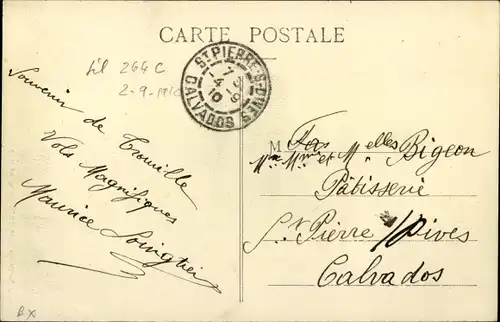 CARTE POSTALE
Lil 264 C
2-9-1910
ST PIERRE-S-DIVES
CALVADOS
7
4
10
Souvenir
de Trouville
Vols Magnifiques
Maurice
M
Mr Mme et Melles Bigeon
Pâtisserie
St Pierre s/Dives
Calvados